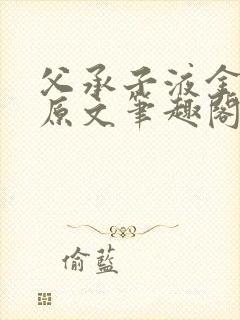 父承子液全
原文笔趣阁
偷蓝